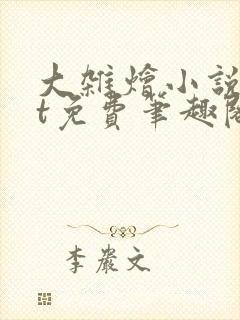 大雜燴小說
t免費筆趣閣
李嚴文